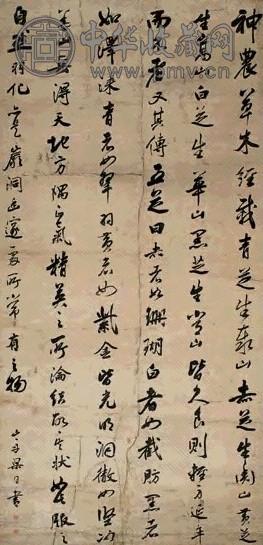 中华收藏网
神農草木經載青芝生泰山赤芝生衡山黃芝
生嵩山白芝生華山黑芝生常山皆久食則輕身延年
而不老者又其傳五芝曰赤者如珊瑚白者如截肪黑者
如澤漆青者如翠羽黃者如紫金皆光明洞徹如堅冰
蓋山岳得天地方隅之氣精英之所淪結故其狀服之
自羽化豈巖洞幽邃處所常有之物
山舟梁同書